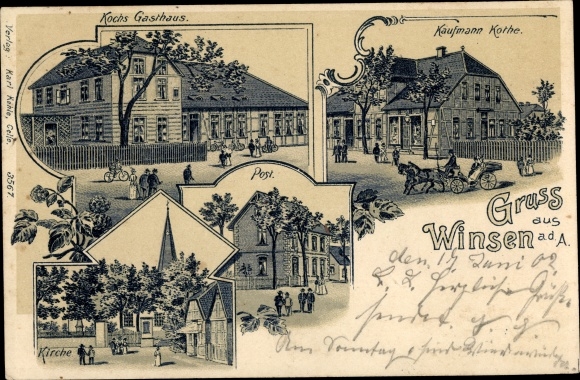 Kochs Gasthaus.
Kaufmann Kothe.
Verlag: Karl Kahle, Celle. 3567
Post.
Gruss
aus
Winsen a.d. A.
den 17 Juni 02
Herzliche Grüße
sendet
Kirche
Am Sonntag sind wir